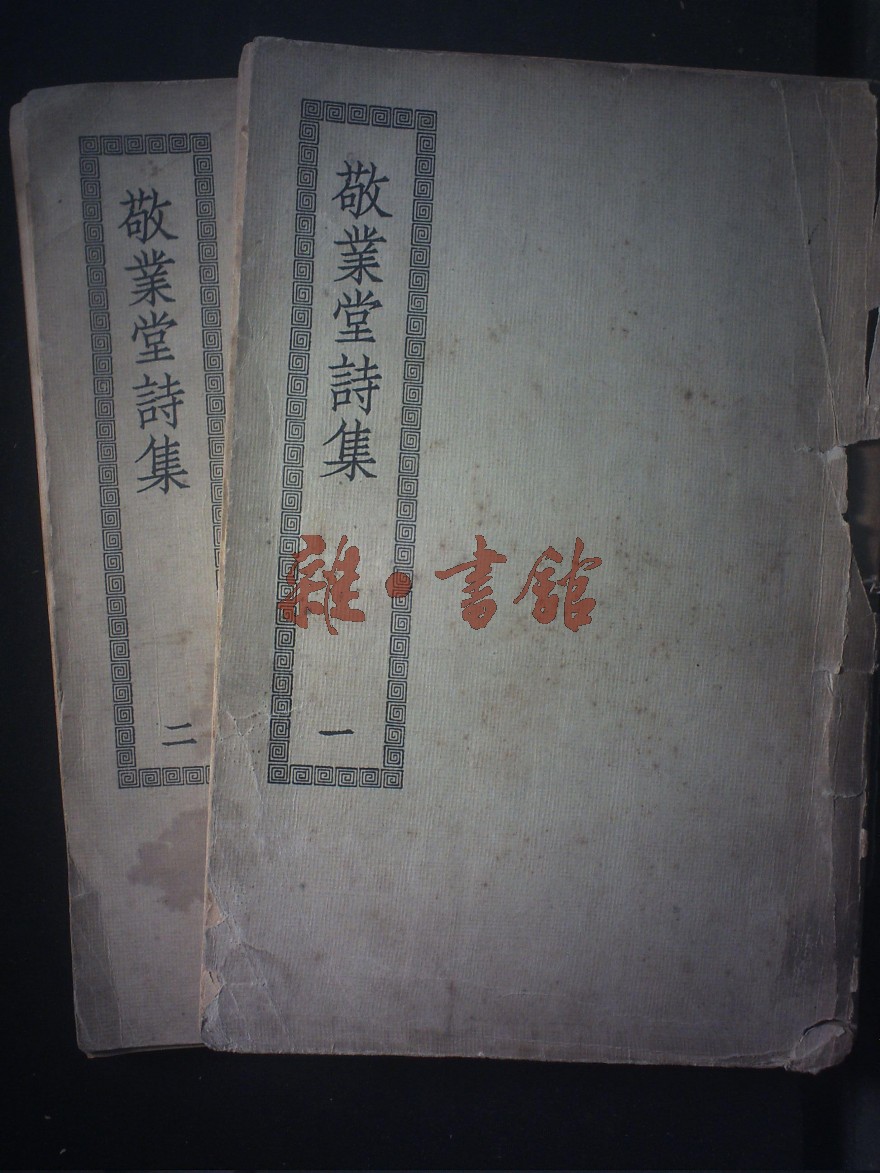 敬業堂詩集
一
敬業堂詩集
二
雜·書館